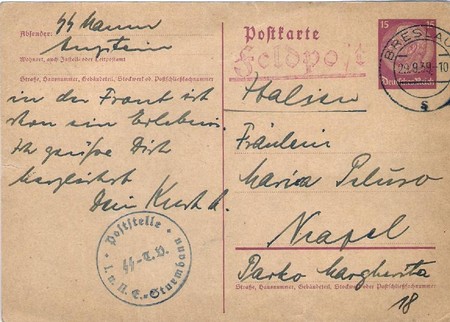 Absender: SS Mann
Augstein
Wohnort, auch Zustell- oder Leitpostamt
Straße, Hausnummer, Gebäudeteil, Stockwerk od. Postschließfachnummer
in der Front ist
ein Erlebnis
Ich grüße Dich
herzlichst
Dein Kurt A.
Poststelle
SS-T.V.
I. u. A. E.-Sturmbann
Postkarte
Feldpost
15 15
Deutsches Reich
BRESLAU
29.9.39.-10
s
Italien
Fräulein
Maria Peluso
Neapel
Parko Margherita
Straße, Hausnummer, Gebäudeteil, Stockwerk od. Postschließfachnummer
18